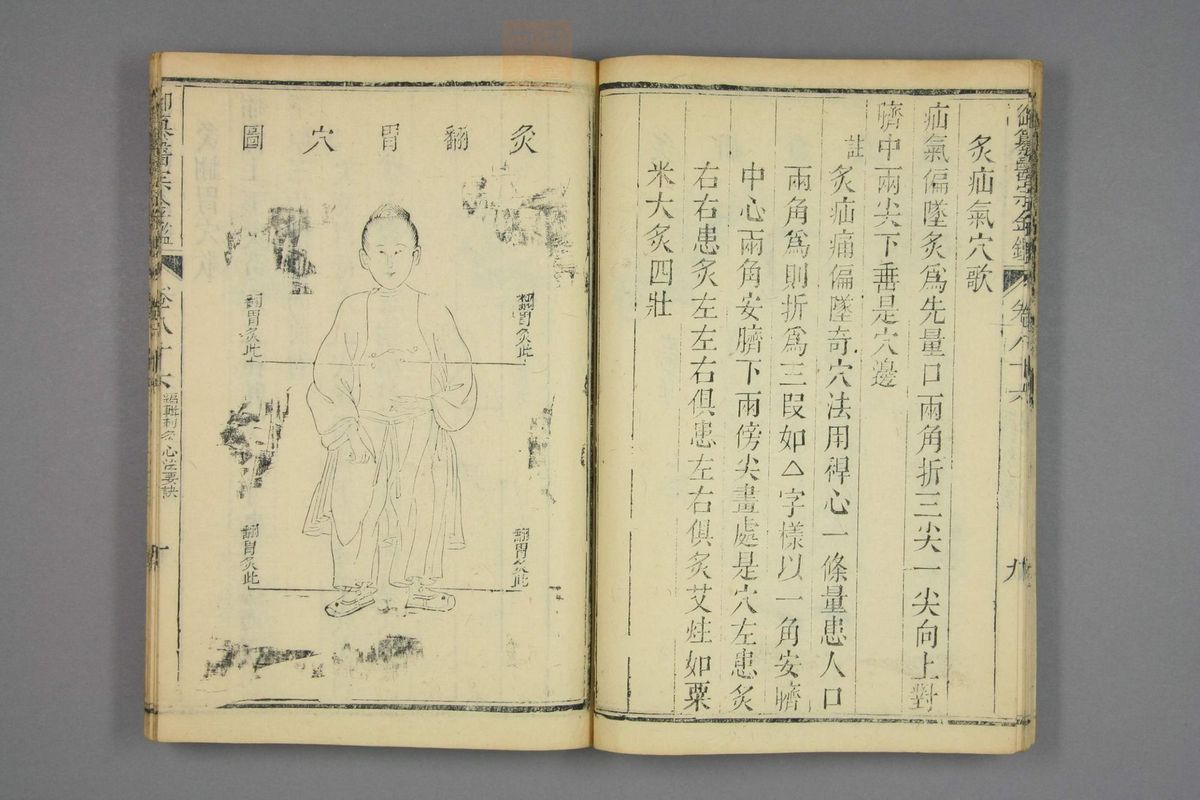 御纂醫宗金鑑
卷八十六
九
灸疝氣穴歌
疝氣偏墜灸為先量口兩角折三尖一尖向上對
臍中兩尖下垂是穴邊
註
灸疝痛偏墜奇穴法用稈心一條量患人口
兩角為則折為三段如△字樣以一角安臍
中心兩角安臍下兩傍尖盡處是穴左患灸
右右患灸左左右俱患左右俱灸艾炷如粟
米大灸四壯
灸翻胃穴圖
翻胃灸此
翻胃灸此
翻胃灸此
翻胃灸此
御纂醫宗金鑑
卷八十六
編輯刺灸心法要訣